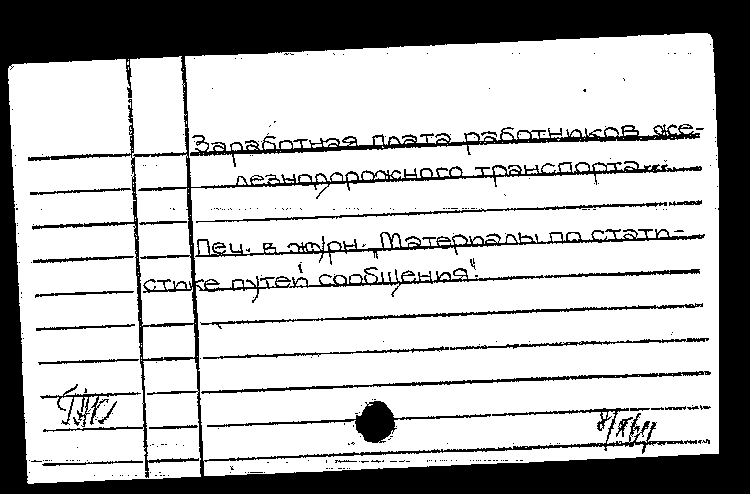 Заработная плата работников же-
лезнодорожного транспорта...
Печ. в журн. „Материалы по стати-
стике путей сообщения".